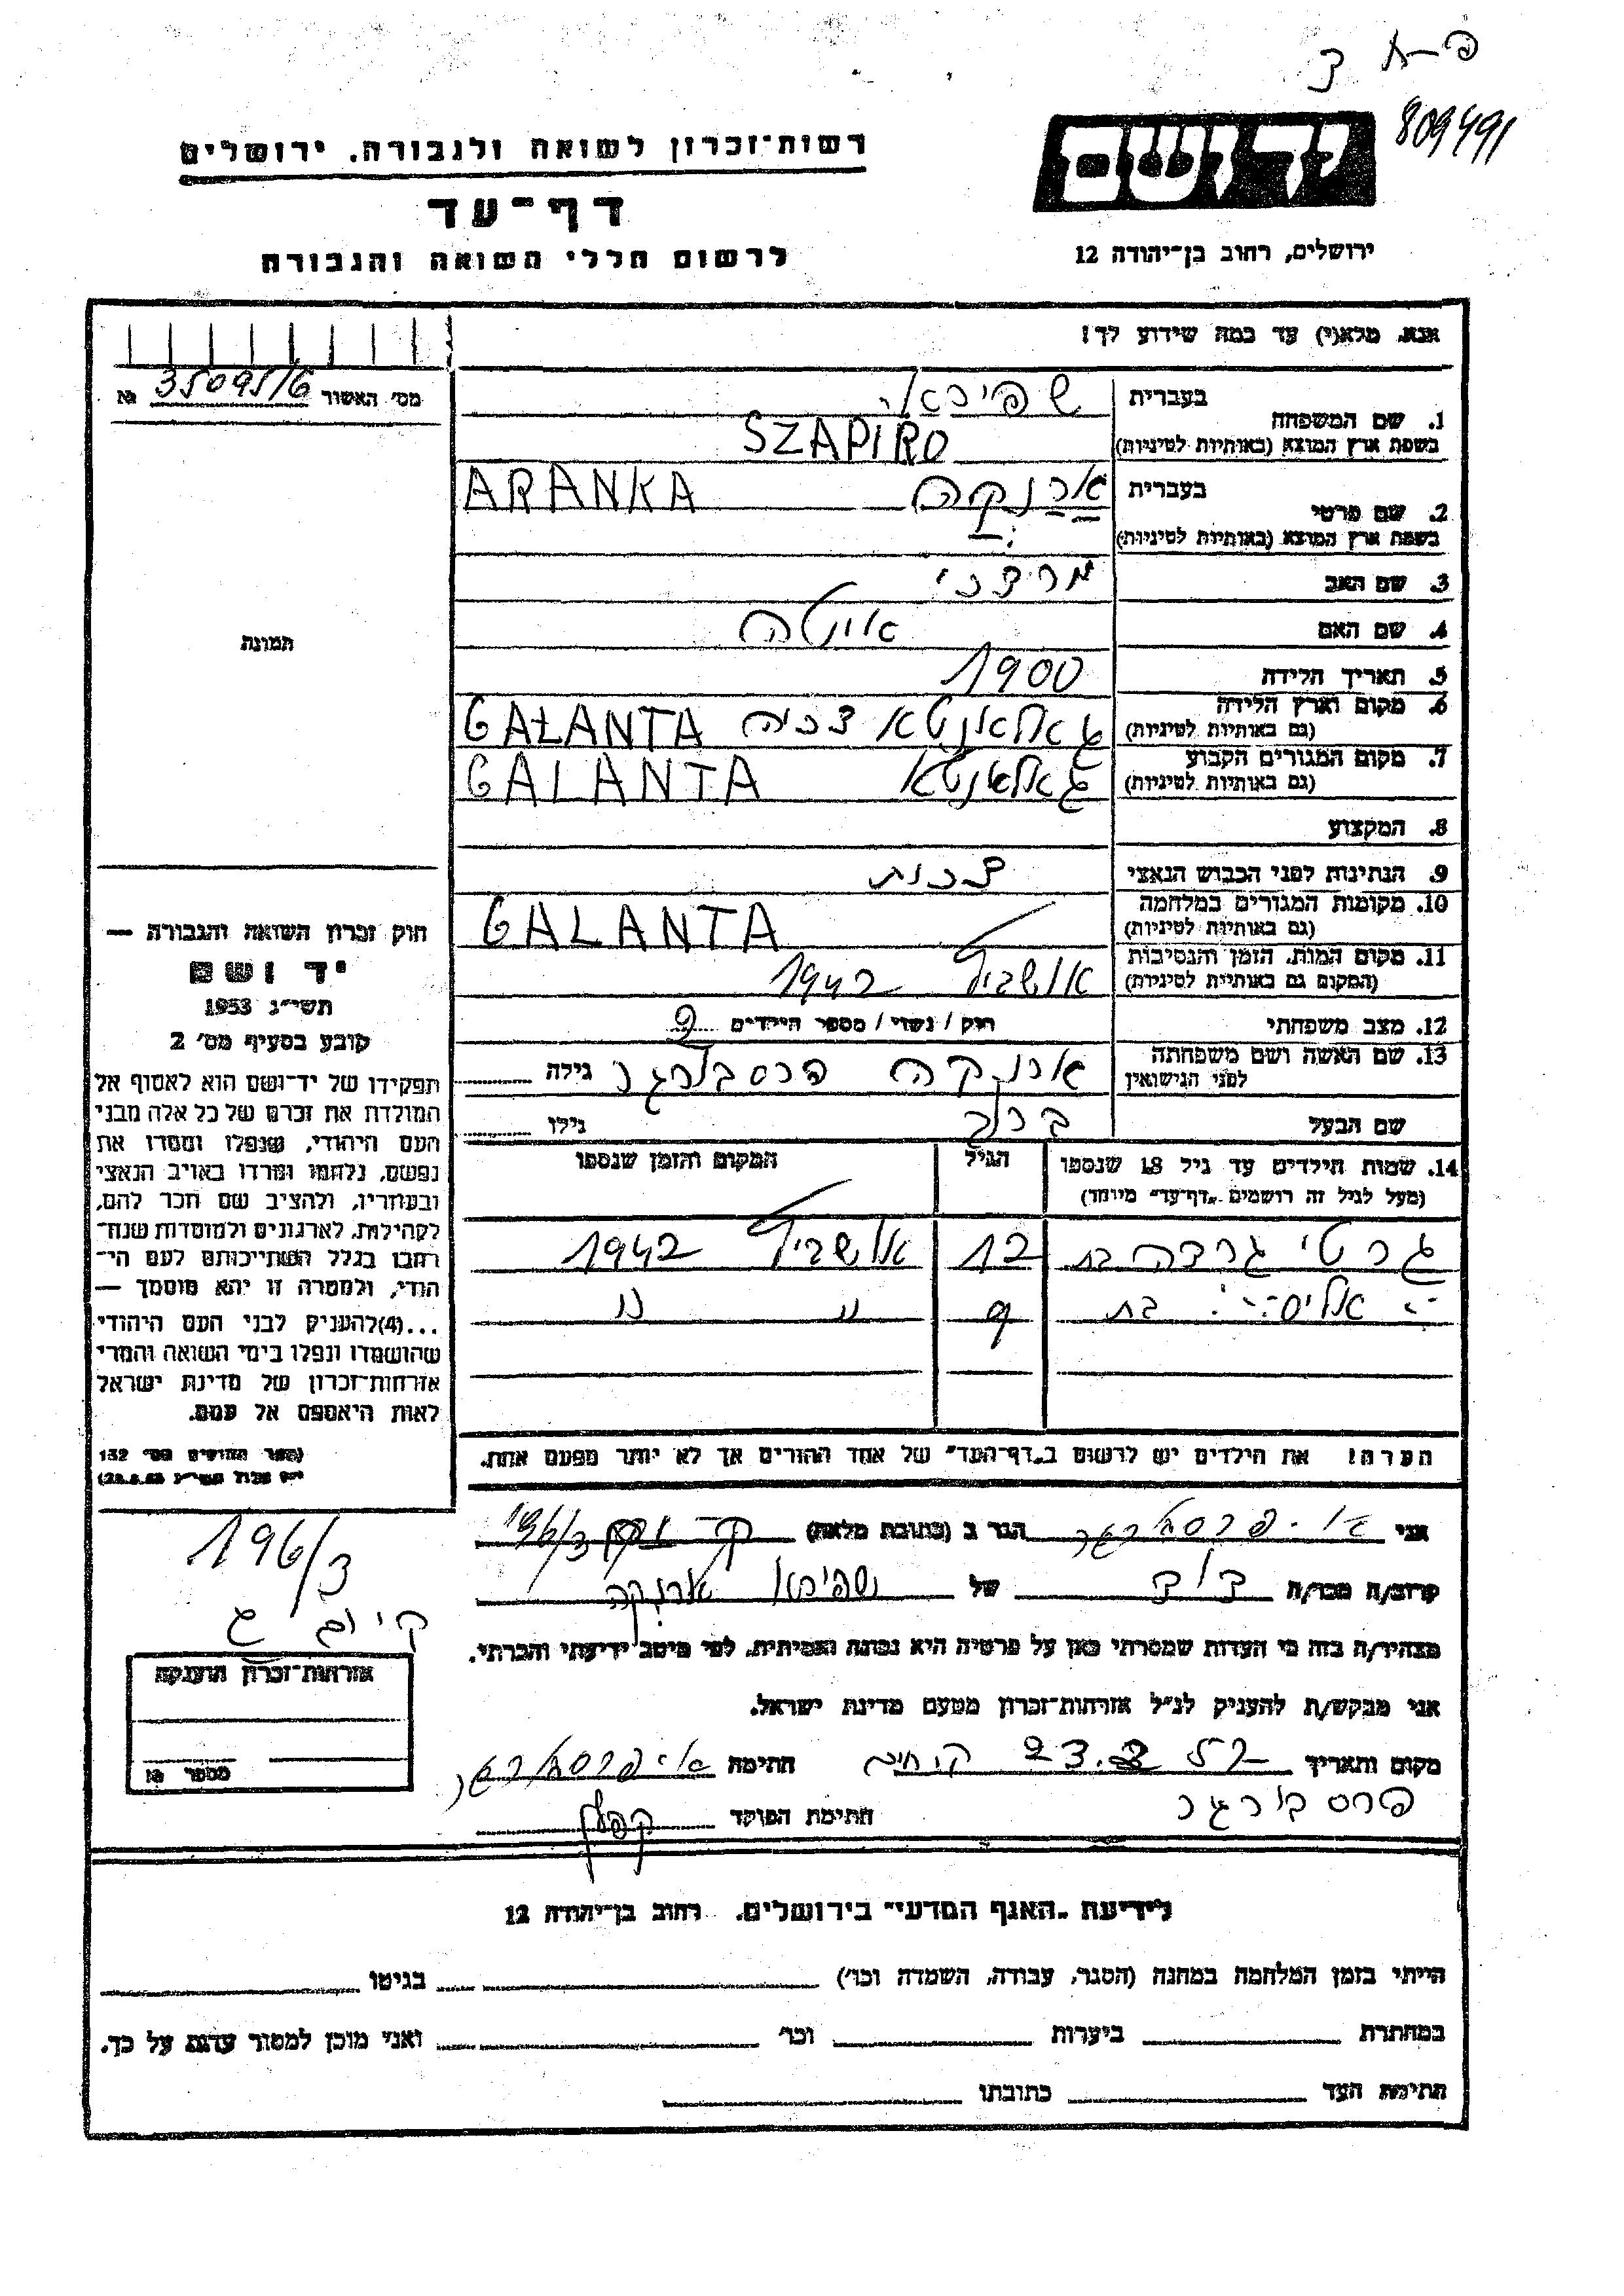 פ-א
צ
809491
יד ושם
רשות־זכרון לשואה ולגבורה. ירושלים
דף־עד
לרשום חללי השואה והגבורה
ירושלים, רחוב בן־יהודה 12
אנא, מלא(י) עד כמה שידוע לך!
מס׳ האשור 35095/6 №
1. שם המשפחה בעברית
שפירא
בשפת ארץ המוצא (באותיות לטיניות) SZAPIRO
2. שם פרטי בעברית ארנקה ARANKA
בשפת ארץ המוצא (באותיות לטיניות)
3. שם האב מרדכי
4. שם האם
5. תאריך הלידה 1900
6. מקום וארץ הלידה גאלאנטא צכיה GALANTA
(גם באותיות לטיניות)
7. מקום המגורים הקבוע גאלאנטא GALANTA
(גם באותיות לטיניות)
8. המקצוע
9. הנתינות לפני הכבוש הנאצי צכות
10. מקומות המגורים במלחמה GALANTA
(גם באותיות לטיניות)
11. מקום המות, הזמן והנסיבות אושביץ 1942
(המקום גם באותיות לטיניות)
12. מצב משפחתי רוק / נשוי / מספר הילדים
13. שם האשה ושם משפחתה ארנקה פרסבורגר גילה
לפני הנישואין
שם הבעל ברוך גילו
14. שמות הילדים עד גיל 18 שנספו הגיל המקום והזמן שנספו
(מעל לגיל זה רושמים „דף־עד״ מיוחד)
גרטי גרדה בת 12 אושביץ 1942
אליס בת 9 " "
הערה! את הילדים יש לרשום ב„דף־העד״ של אחד ההורים אך לא יותר מפעם אחת.
תמונה
חוק זכרון השואה והגבורה —
יד ושם
תשי״ג 1953
קובע בסעיף מס׳ 2
תפקידו של יד־ושם הוא לאסוף אל
המולדת את זכרם של כל אלה מבני
העם היהודי, שנפלו ומסרו את
נפשם, נלחמו ומרדו באויב הנאצי
ובעוזריו, ולהציב שם וזכר להם,
לקהילות, לארגונים ולמוסדות שנח־
רבו בגלל השתייכותם לעם הי־
הודי, ולמטרה זו יהא מוסמך —
...(4)להעניק לבני העם היהודי
שהושמדו ונפלו בימי השואה והמרי
אזרחות־זכרון של מדינת ישראל
לאות היאספם אל עמם.
(ספר החוקים מס׳ 132
אני פרסבורגר הגר ב (כתובת מלאה) 196/3
קרוב/ה מכר/ה דוד של שפירא ארנקה
מצהיר/ה בזה כי העדות שמסרתי כאן על פרטיה היא נכונה ואמיתית, לפי מיטב ידיעתי והכרתי.
אני מבקש/ת להעניק לנ״ל אזרחות־זכרון מטעם מדינת ישראל.
מקום ותאריך חתימה פרסבורגר
פרסבורגר
חתימת הפוקד קפלן
196/3
אזרחות־זכרון הוענקה
מספר №
לידיעת „האגף המדעי״ בירושלים. רחוב בן־יהודה 12
הייתי בזמן המלחמה במחנה (הסגר, עבודה, השמדה וכו׳) בגיטו
במחתרת ביערות וכו׳ ואני מוכן למסור עדות על כך.
חתימת העד כתובתו